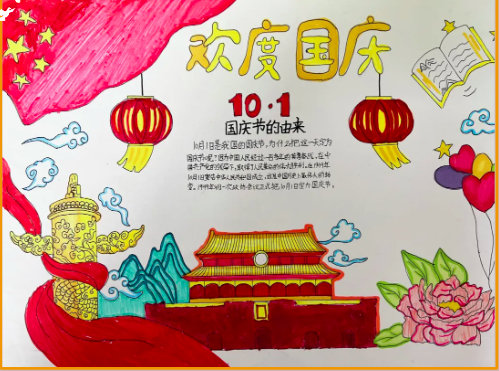 欢度国庆
10·1
国庆节的由来
10月1日是我国的国庆节,为什么把这一天定为
国庆节呢?因为中国人民经过一百多年的英勇奋战,在中
国共产党的领导下,取得了人民革命的伟大胜利。在1949年
10月1日宣告中华人民共和国成立,这是中国历史上最伟大的转
变。1949年